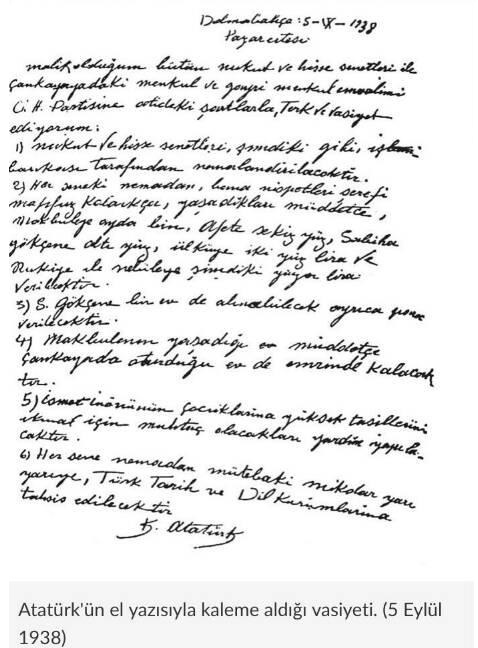 Dolmabahçe: 5-IX-1938
Pazartesi
malik olduğum bütün nukut ve hisse senetleri ile
Çankayadaki menkul ve gayri menkul emvalimi
C. H. Partisine atideki şartlarla, Terk ve Vasiyet
ediyorum:
1) nukut ve hisse senetleri, şimdiki gibi, iş
bankası tarafından nemalandırılacaktır.
2) Her seneki nemadan, bana nispetleri şerefi
mahfuz kaldıkça, yaşadıkları müddetçe,
Makbuleye ayda bin, Afete sekiz yüz, Sabiha
gökçene altı yüz, ülküye iki yüz lira ve
Rukiye ile nebileye şimdiki yüzer lira
verilecektir.
3) S. Gökçene bir ev de alınabilecek ayrıca para
verilecektir.
4) Makbulenin yaşadığı müddetçe
Çankayada oturduğu ev de emrinde kalacak
tır.
5) ismet inönünün çocuklarına yüksek tahsillerini
ikmal için muhtaç olacakları yardım yapıla-
caktır.
6) Her sene nemadan mütebaki miktar yarı
yarıya, Türk Tarih ve Dil Kurumlarına
tahsis edilecektir
K. Atatürk
Atatürk'ün el yazısıyla kaleme aldığı vasiyeti. (5 Eylül
1938)